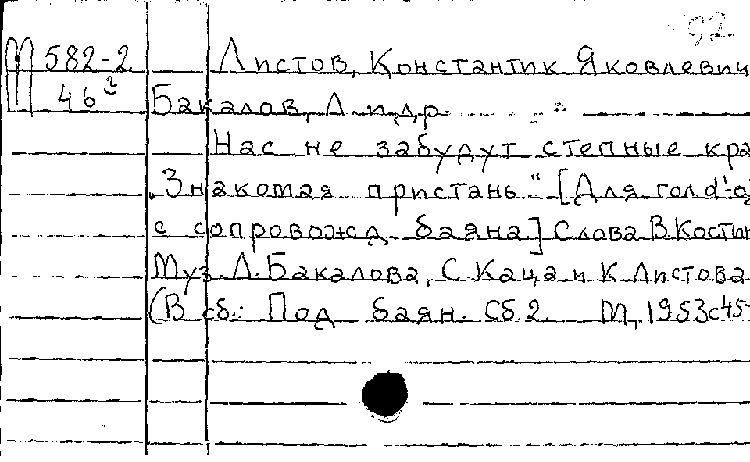 92
М 582-2 Листов, Константин Яковлевич
46² Бакалов, Л и др.
Нас не забудут степные кра
„Знакомая пристань" [Для голоса
с сопровожд. баяна] Слова В. Костин
Муз Л. Бакалова, С Каца и К Листова
(В сб.: Под баян. Сб 2. М, 1953 с 45-